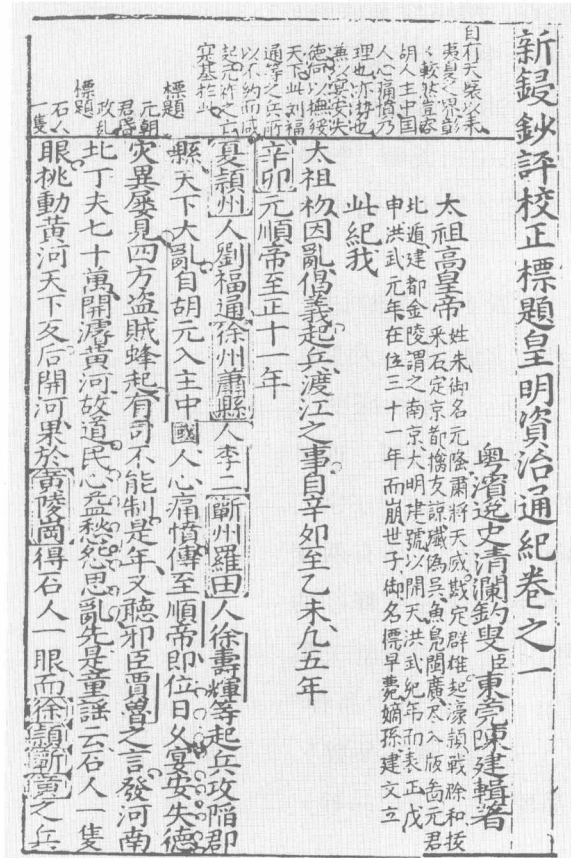 新鋟鈔評校正標題皇明資治通紀卷之一
粵濱逸史清瀾釣叟臣東莞陳建輯著
太祖高皇帝
姓朱御名元隆肅將天威戡定群雄起濠潁戰滁和按
采石定京都擒友諒殲偽吳魚鳧閩廣尽入版啚元君
北遁建都金陵謂之南京大明建號以開天洪武紀年而表正戊
申洪武元年在位三十一年而崩世子御名標早薨嫡孫建文立
此紀我
太祖初因亂倡義起兵渡江之事自辛卯至乙未凡五年
辛卯元順帝至正十一年
夏潁州人劉福通徐州蕭縣人李二蘄州羅田人徐壽輝等起兵攻陷郡
縣天下大亂自胡元入主中國人心痛憤傳至順帝即位日久宴安失德
災異屢見四方盗賊蜂起有司不能制是年又聽邪臣賈魯之言發河南
北丁夫七十萬開濬黃河故道民心益愁怨思亂先是童謡云石人一隻
眼挑動黃河天下反后開河果於黃陵岡得石人一眼而徐潁蘄黃之兵
自有天以来
夷夏之界彰
〻較然豈容
胡人主中国
人心痛憤乃
理也亦势也
兼以宴安失
德何以撫綏
天下此刘福
通等之兵所
以不約而咸
起元祚之亡
寔基於此
標題
元朝
君昏
政乱
標題
石人
一隻